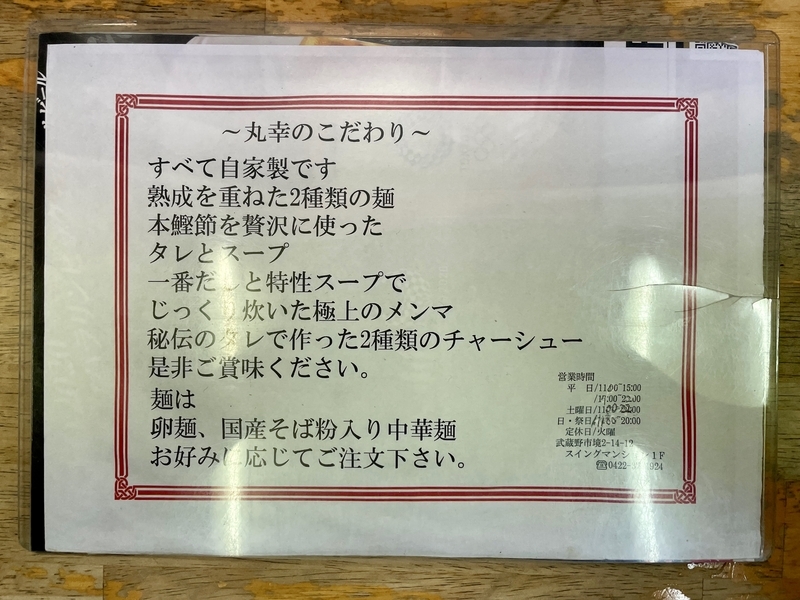 ～丸幸のこだわり～
すべて自家製です
熟成を重ねた2種類の麺
本鰹節を贅沢に使った
タレとスープ
一番だしと特性スープで
じっくり炊いた極上のメンマ
秘伝のタレで作った2種類のチャーシュー
是非ご賞味ください。
麺は
卵麺、国産そば粉入り中華麺
お好みに応じてご注文下さい。
営業時間
平 日/11:00~15:00
土曜日/
日・祭日/
定休日/火曜
武蔵野市境2-14-
スイングマンション1F
☎0422-